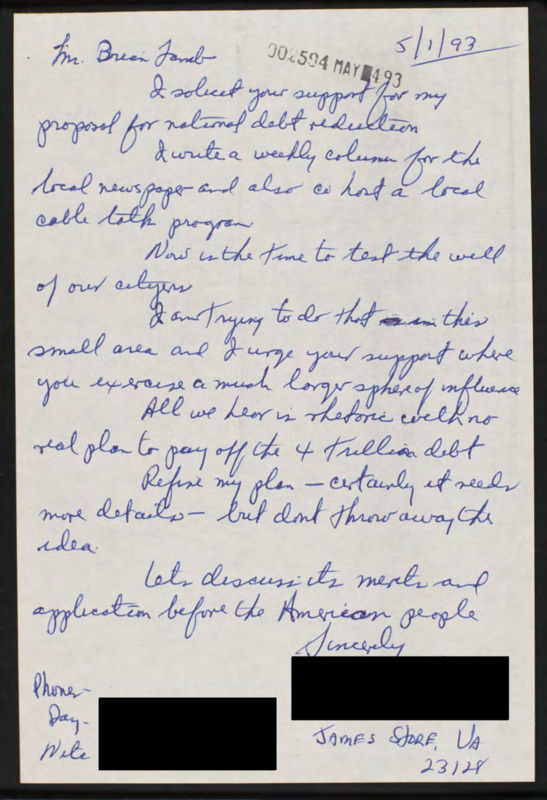 5/1/93
Mr. Brian Lamb
002594 MAY 493
I solicit your support for my
proposal for national debt reduction
I write a weekly column for the
local newspaper and also co host a local
cable talk program
Now is the time to test the will
of our citizens
I am trying to do that in this
small area and I urge your support where
you exercise a much larger sphere of influence
All we hear is rhetoric with no
real plan to pay off the 4 trillion debt
Refine my plan – certainly it needs
more details – but dont throw away the
idea.
Lets discuss its merits and
application before the American people
Sincerely
Phones-
Day-
Nite
JAMES STORE, VA
23128